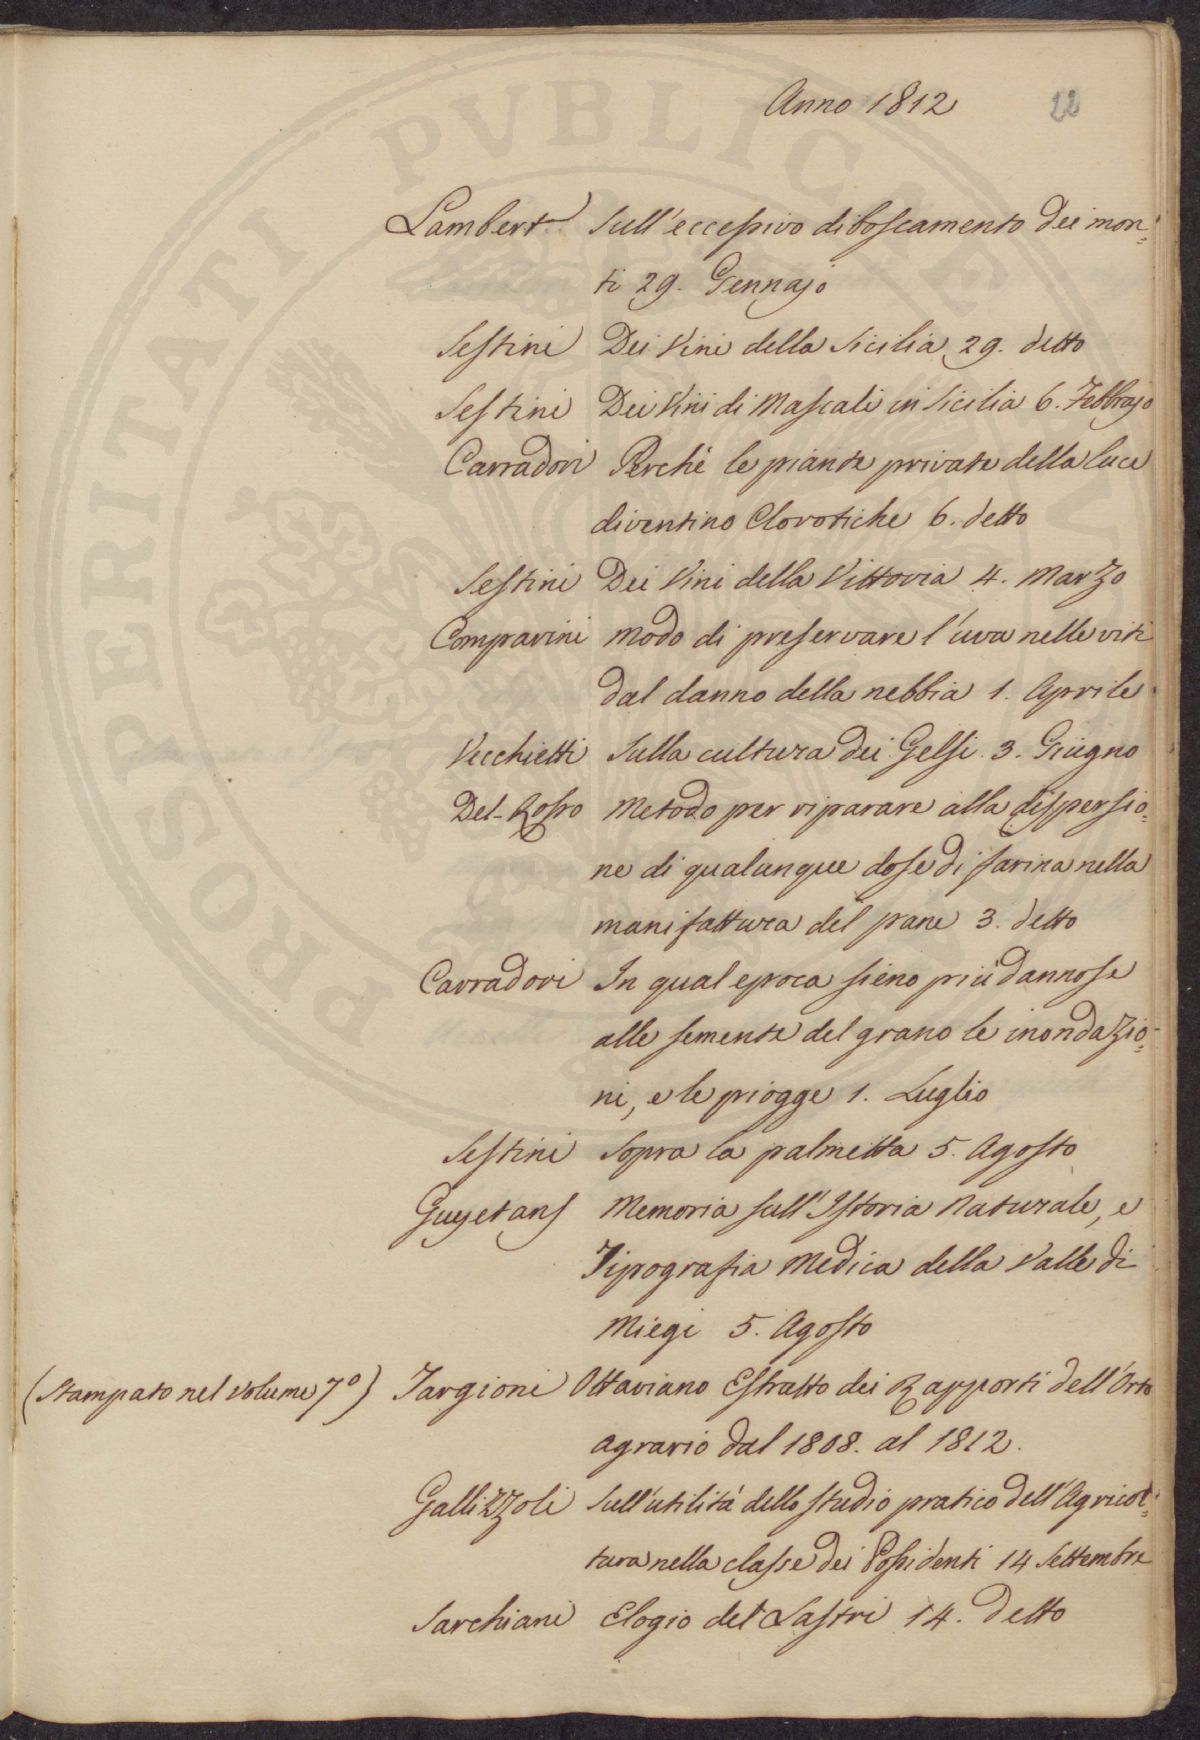 Anno 1812
22
Lambert Sull'eccessivo diboscamento dei mon=
ti 29. Gennajo
Sestini Dei Vini della Sicilia 29. detto
Sestini Dei Vini di Mascali in Sicilia 6. Febbrajo
Carradori Perché le piante private della luce
diventino Clorotiche 6. detto
Sestini Dei Vini della Vittoria 4. Marzo
Comparini Modo di preservare l'uva nelle viti
dal danno della nebbia 1. Aprile
Vecchietti Sulla cultura dei Gelsi. 3. Giugno
Del-Rosso Metodo per riparare alla dispersio=
ne di qualunque dose di farina nella
manifattura del pane 3. detto
Carradori In qual epoca sieno più dannose
alle semente del grano le inondazio=
ni, e le piogge 1. Luglio
Sestini Sopra la palmetta 5. Agosto
Guyetans Memoria sull'Istoria Naturale, e
Tipografia Medica della Valle di
Miegi 5. Agosto
(Stampato nel volume 7º) Targioni Ottaviano Estratto dei Rapporti dell'Orto
agrario dal 1808. al 1812.
Gallizzoli Sull'utilità dello studio pratico dell'Agricol=
tura nella classe dei Possidenti 14 Settembre
Sarchiani Elogio del Lastri 14. detto
PROSPERITATI PVBLICAE